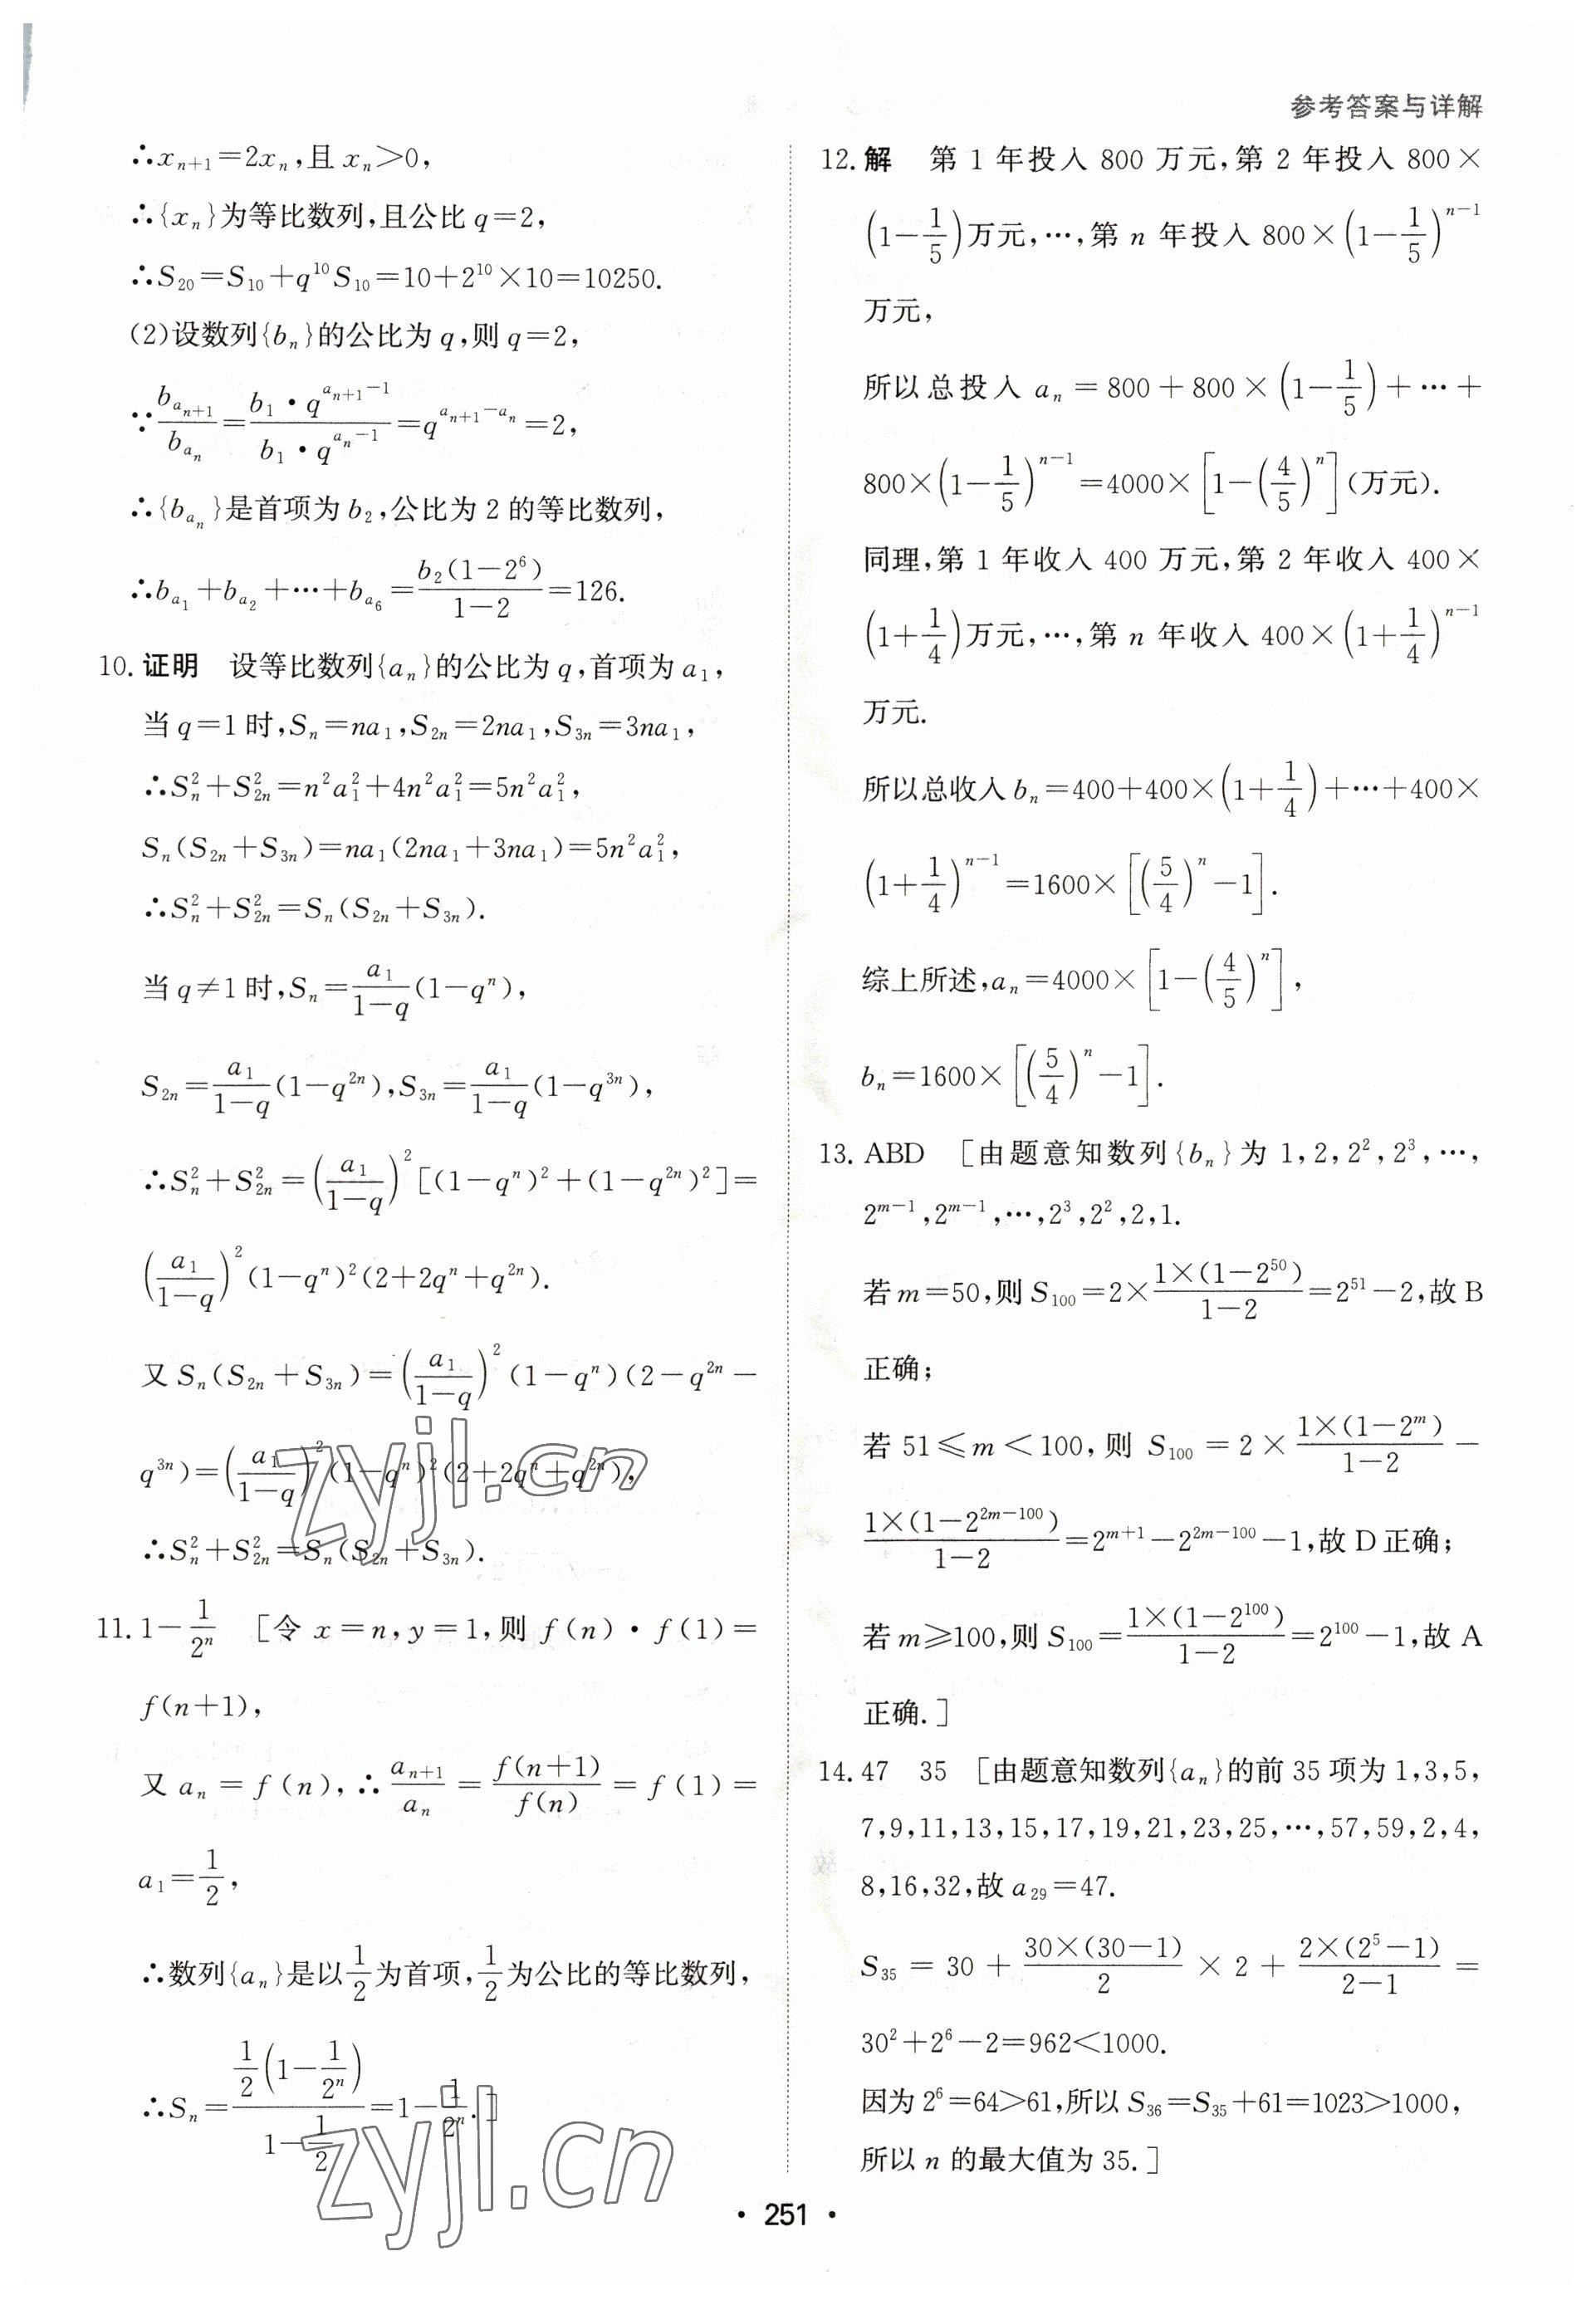 参考答案与详解
∴xₙ₊₁=2xₙ,且 xₙ>0,
∴{xₙ}为等比数列,且公比 q=2,
∴S₂₀=S₁₀+q¹⁰S₁₀=10+2¹⁰×10=10250.
(2)设数列{bₙ}的公比为 q,则 q=2,
∵b_{a_{n+1}}/b_{a_n}=(b₁·q^{a_{n+1}-1})/(b₁·q^{a_n-1})=q^{a_{n+1}-a_n}=2,
∴{b_{a_n}}是首项为 b₂,公比为 2 的等比数列,
∴b_{a_1}+b_{a_2}+…+b_{a_6}=b₂(1-2⁶)/(1-2)=126.
10. 证明 设等比数列{aₙ}的公比为 q,首项为 a₁,
当 q=1 时,Sₙ=na₁,S₂ₙ=2na₁,S₃ₙ=3na₁,
∴Sₙ²+S₂ₙ²=n²a₁²+4n²a₁²=5n²a₁²,
Sₙ(S₂ₙ+S₃ₙ)=na₁(2na₁+3na₁)=5n²a₁²,
∴Sₙ²+S₂ₙ²=Sₙ(S₂ₙ+S₃ₙ).
当 q≠1 时,Sₙ=a₁/(1-q)(1-qⁿ),
S₂ₙ=a₁/(1-q)(1-q²ⁿ),S₃ₙ=a₁/(1-q)(1-q³ⁿ),
∴Sₙ²+S₂ₙ²=(a₁/(1-q))²[(1-qⁿ)²+(1-q²ⁿ)²]=
(a₁/(1-q))²(1-qⁿ)²(2+2qⁿ+q²ⁿ).
又 Sₙ(S₂ₙ+S₃ₙ)=(a₁/(1-q))²(1-qⁿ)(2-q²ⁿ-
q³ⁿ)=(a₁/(1-q))²(1-qⁿ)²(2+2qⁿ+q²ⁿ),
∴Sₙ²+S₂ₙ²=Sₙ(S₂ₙ+S₃ₙ).
11. 1-1/2ⁿ [令 x=n,y=1,则 f(n)·f(1)=
f(n+1),
又 aₙ=f(n),∴aₙ₊₁/aₙ=f(n+1)/f(n)=f(1)=
a₁=1/2,
∴数列{aₙ}是以1/2为首项,1/2为公比的等比数列,
∴Sₙ=(1/2(1-1/2ⁿ))/(1-1/2)=1-1/2ⁿ.]
12. 解 第 1 年投入 800 万元,第 2 年投入 800×
(1-1/5)万元,…,第 n 年投入 800×(1-1/5)ⁿ⁻¹
万元,
所以总投入 aₙ=800+800×(1-1/5)+…+
800×(1-1/5)ⁿ⁻¹=4000×[1-(4/5)ⁿ](万元).
同理,第 1 年收入 400 万元,第 2 年收入 400×
(1+1/4)万元,…,第 n 年收入 400×(1+1/4)ⁿ⁻¹
万元.
所以总收入 bₙ=400+400×(1+1/4)+…+400×
(1+1/4)ⁿ⁻¹=1600×[(5/4)ⁿ-1].
综上所述,aₙ=4000×[1-(4/5)ⁿ],
bₙ=1600×[(5/4)ⁿ-1].
13. ABD [由题意知数列{bₙ}为 1,2,2²,2³,…,
2ᵐ⁻¹,2ᵐ⁻¹,…,2³,2²,2,1.
若 m=50,则 S₁₀₀=2×1×(1-2⁵⁰)/(1-2)=2⁵¹-2,故 B
正确;
若 51≤m<100,则 S₁₀₀=2×1×(1-2ᵐ)/(1-2)-
1×(1-2²ᵐ⁻¹⁰⁰)/(1-2)=2ᵐ⁺¹-2²ᵐ⁻¹⁰⁰-1,故 D 正确;
若 m≥100,则 S₁₀₀=1×(1-2¹⁰⁰)/(1-2)=2¹⁰⁰-1,故 A
正确.]
14. 47 35 [由题意知数列{aₙ}的前 35 项为 1,3,5,
7,9,11,13,15,17,19,21,23,25,…,57,59,2,4,
8,16,32,故 a₂₉=47.
S₃₅=30+30×(30-1)/2×2+2×(2⁵-1)/(2-1)=
30²+2⁶-2=962<1000.
因为 2⁶=64>61,所以 S₃₆=S₃₅+61=1023>1000,
所以 n 的最大值为 35.]
zyjl.cn
zyjl.cn
• 251 •